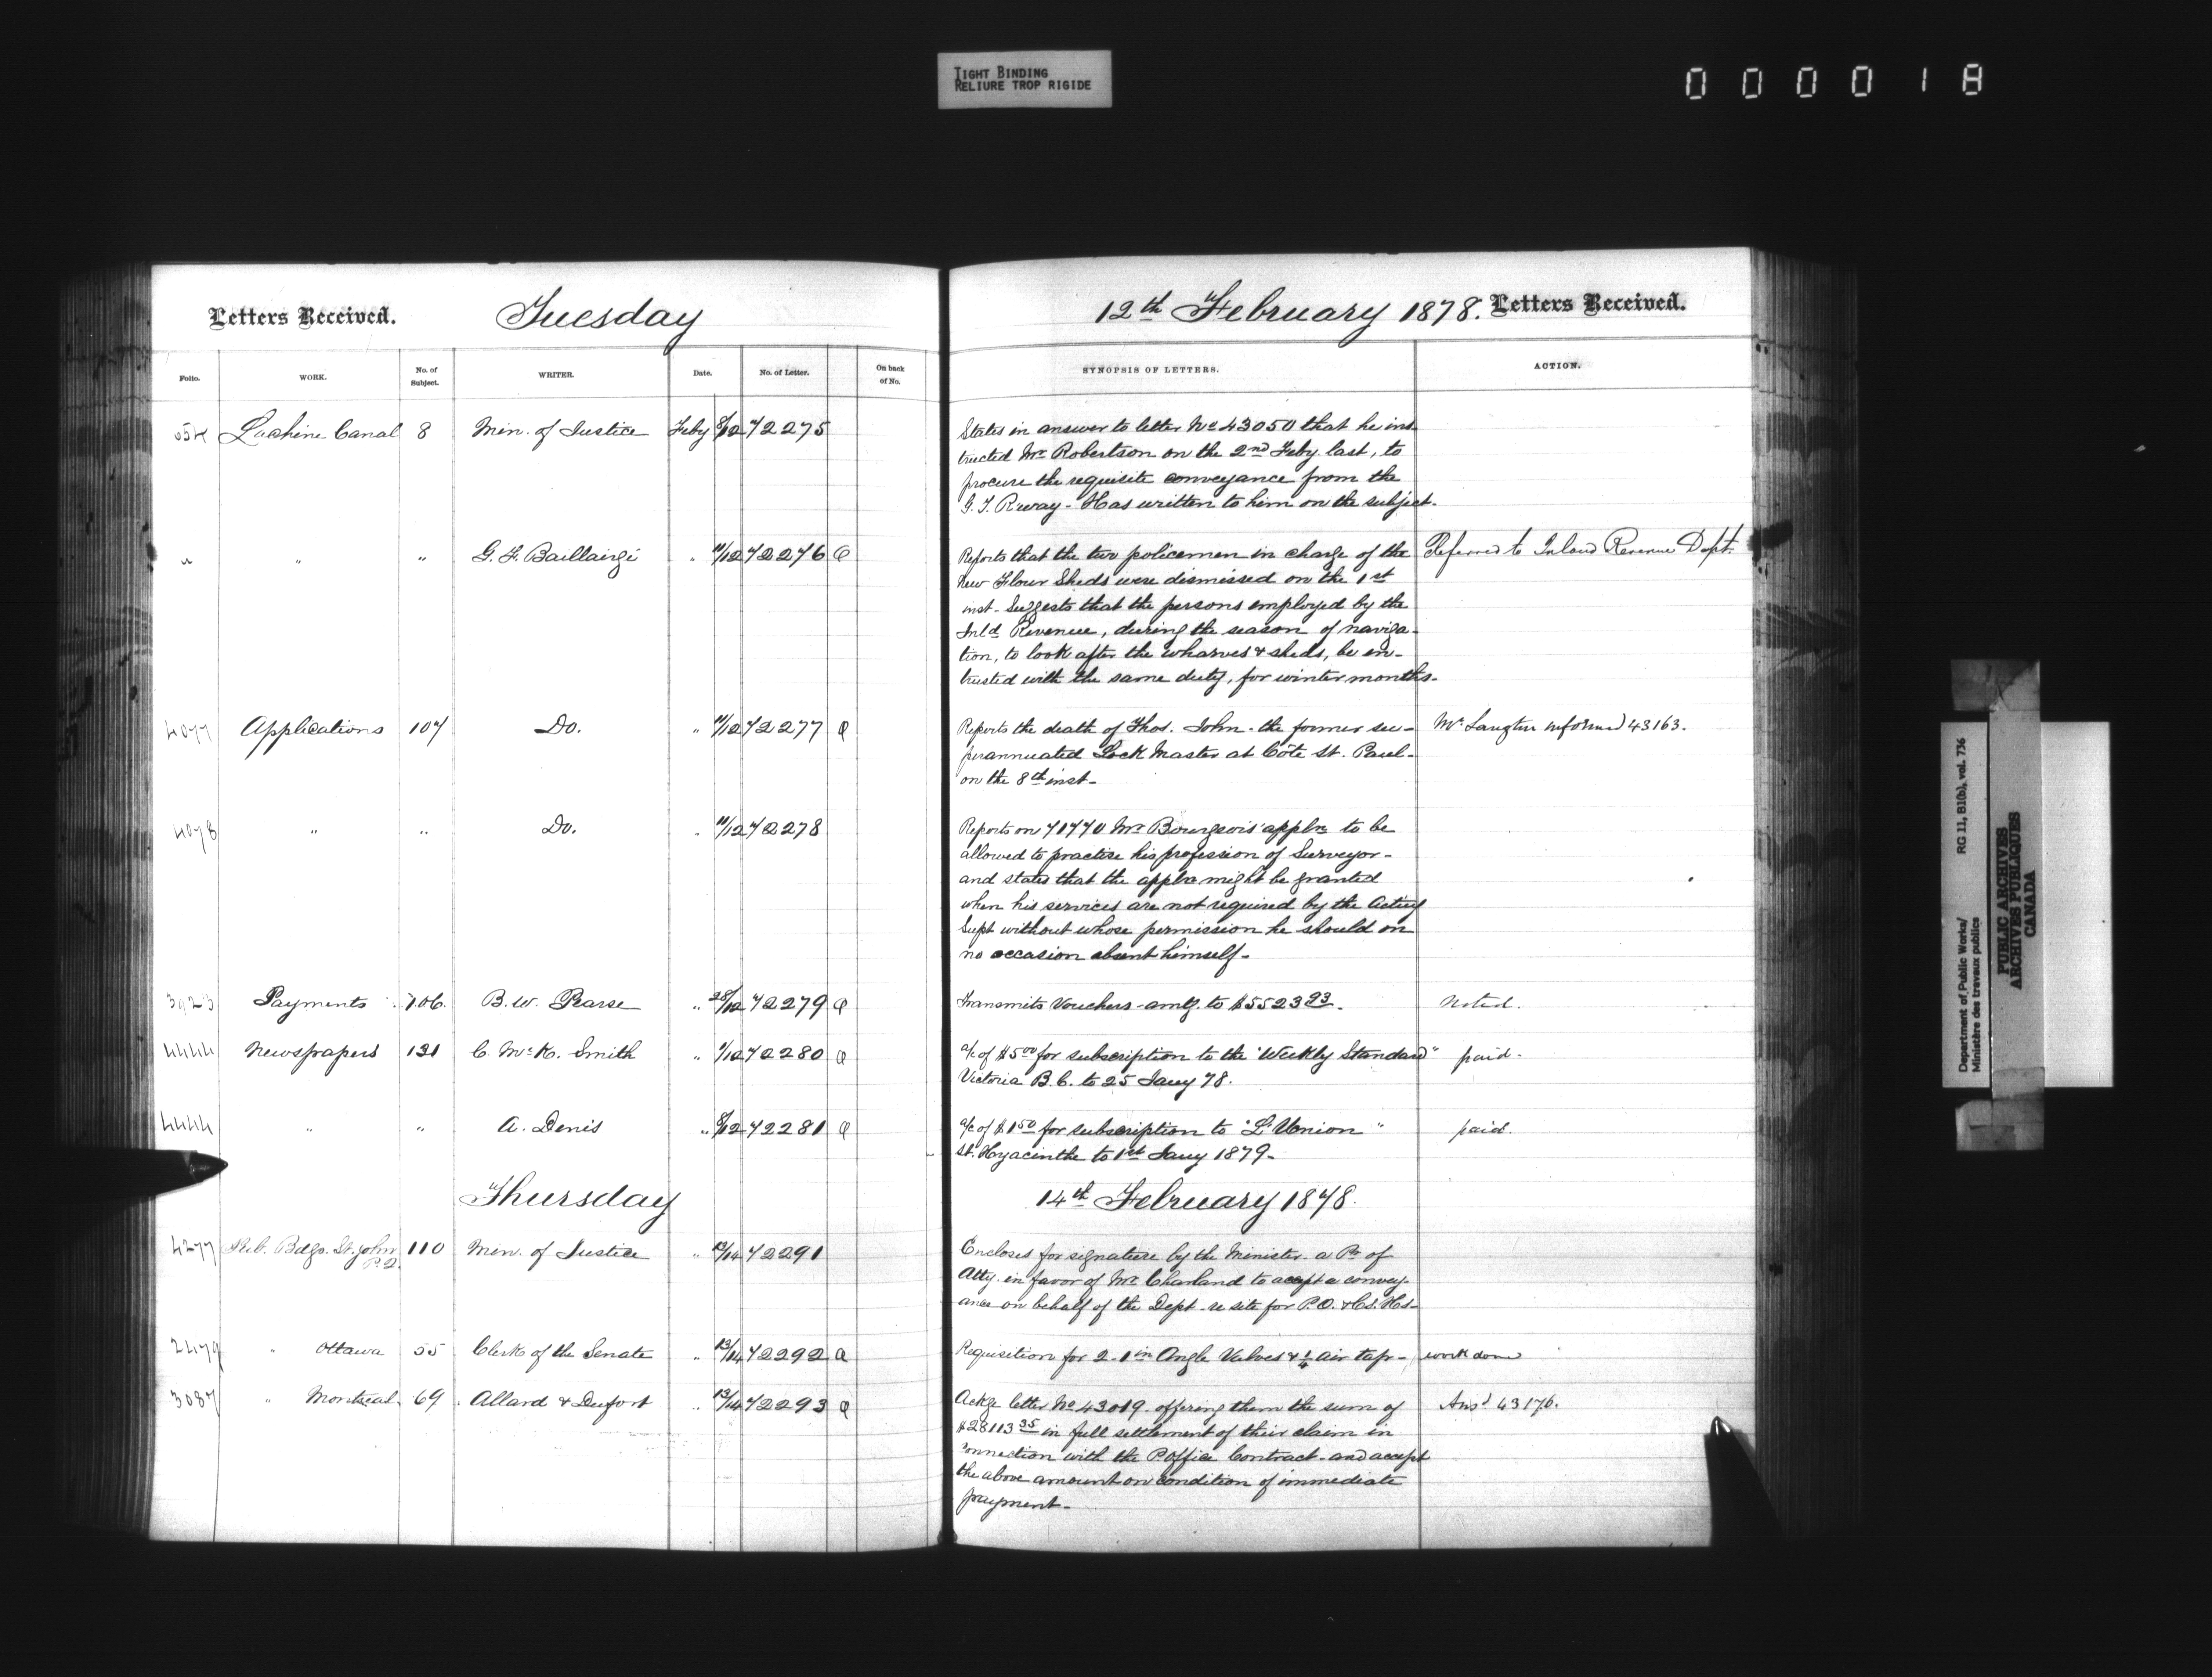 TIGHT BINDING
RELIURE TROP RIGIDE
000018
Letters Received. Tuesday 12th February 1878. Letters Received.
Folio. WORK. No. of Subject. WRITER. Date. No. of Letter. On back of No. SYNOPSIS OF LETTERS. ACTION.
Lachine Canal 8 Min. of Justice Feby 8/12 72275 States in answer to letter No 43050 that he ins
tructed Mr Robertson on the 2nd Feby last, to
procure the requisite conveyance from the
G. T. Rway - Has written to him on the subject.
" " " G. F. Baillairgé " 11/12 72276 Q Reports that the two policemen in charge of the Referred to Inland Revenue Dept.
New Flour Sheds were dismissed on the 1st
inst - Suggests that the persons employed by the
Inld Revenue, during the season of naviga-
tion, to look after the wharves & sheds, be en-
trusted with the same duty, for winter months -
4077 Applications 107 Do. " 11/12 72277 Q Reports the death of Thos. John - the former su- Mr Langton informed 43163.
perannuated Lock Master at Côte St. Paul -
on the 8th inst -
4078 " " Do. " 11/12 72278 Reports on 71770 Mr Bourgeois' appln to be
allowed to practise his profession of Surveyor -
and states that the appln might be granted
when his services are not required by the Acting
Supt without whose permission he should on
no occasion absent himself -
3923 Payments 106. B. W. Pearse " 28/12 72279 Q Transmits Vouchers amtg. to $5523 93. Noted.
4444 Newspapers 131 C. McK. Smith " 1/12 72280 Q a/c of $5 00 for subscription to the "Weekly Standard" paid -
Victoria B. C. to 25 Jany 78.
4444 " " A. Denis " 8/12 72281 Q a/c of $1 50 for subscription to "L'Union" paid.
St. Hyacinthe to 1st Jany 1879 -
Thursday 14th February 1878.
4277 Pub. Bdgs. St. John P.Q. 110 Min. of Justice " 13/14 72291 Encloses for signature by the Minister - a Pr of
Atty. in favor of Mr Charland to accept a convey-
ance on behalf of the Dept - re site for P.O. & Cs. Hs -
2479 " Ottawa 55 Clerk of the Senate " 13/14 72292 Q Requisition for 2 - 1 in Angle Valves & 1/4 air tap - work done
3087 " Montreal 69 Allard & Dufort " 13/14 72293 Q Ackge letter No 43019 - offering them the sum of Ansd 43176.
$28113 35 in full settlement of their claim in
connection with the P. Office Contract - and accept
the above amount on condition of immediate
payment -
Department of Public Works/ RG 11, B1(b), vol. 736
Ministère des travaux publics
PUBLIC ARCHIVES
ARCHIVES PUBLIQUES
CANADA